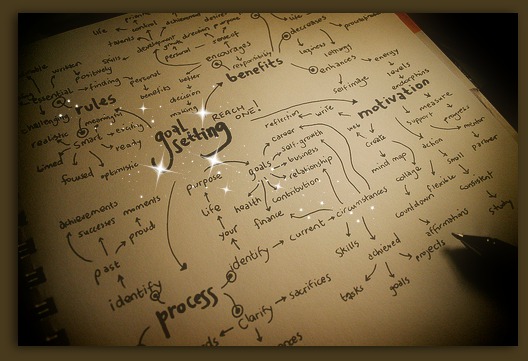 life
control
achievement
direction
purpose
talents
development
skills
personal
sense of
encourages
responsibility
decreases
laziness
lethargy
enhances
energy
levels
self image
endorphins
benefits
motivation
positively
finding
personal
benefits
better
decision
making
essential
rules
challenging
meaningful
realistic
smart
exciting
ready
timed
focused
optimistic
REACH
ONE!
goal
setting
reflection
write
career
self-growth
business
relationship
contribution
goals
health
finance
purpose
life
your
identify
current
circumstances
create
mind map
collage
measure
support
progress
mentor
action
partner
small
flexible
consistent
countdown
affirmations
study
skills
achieved
projects
tasks
goals
achievements
successes
moments
proud
past
identify
process
clarify
sacrifices